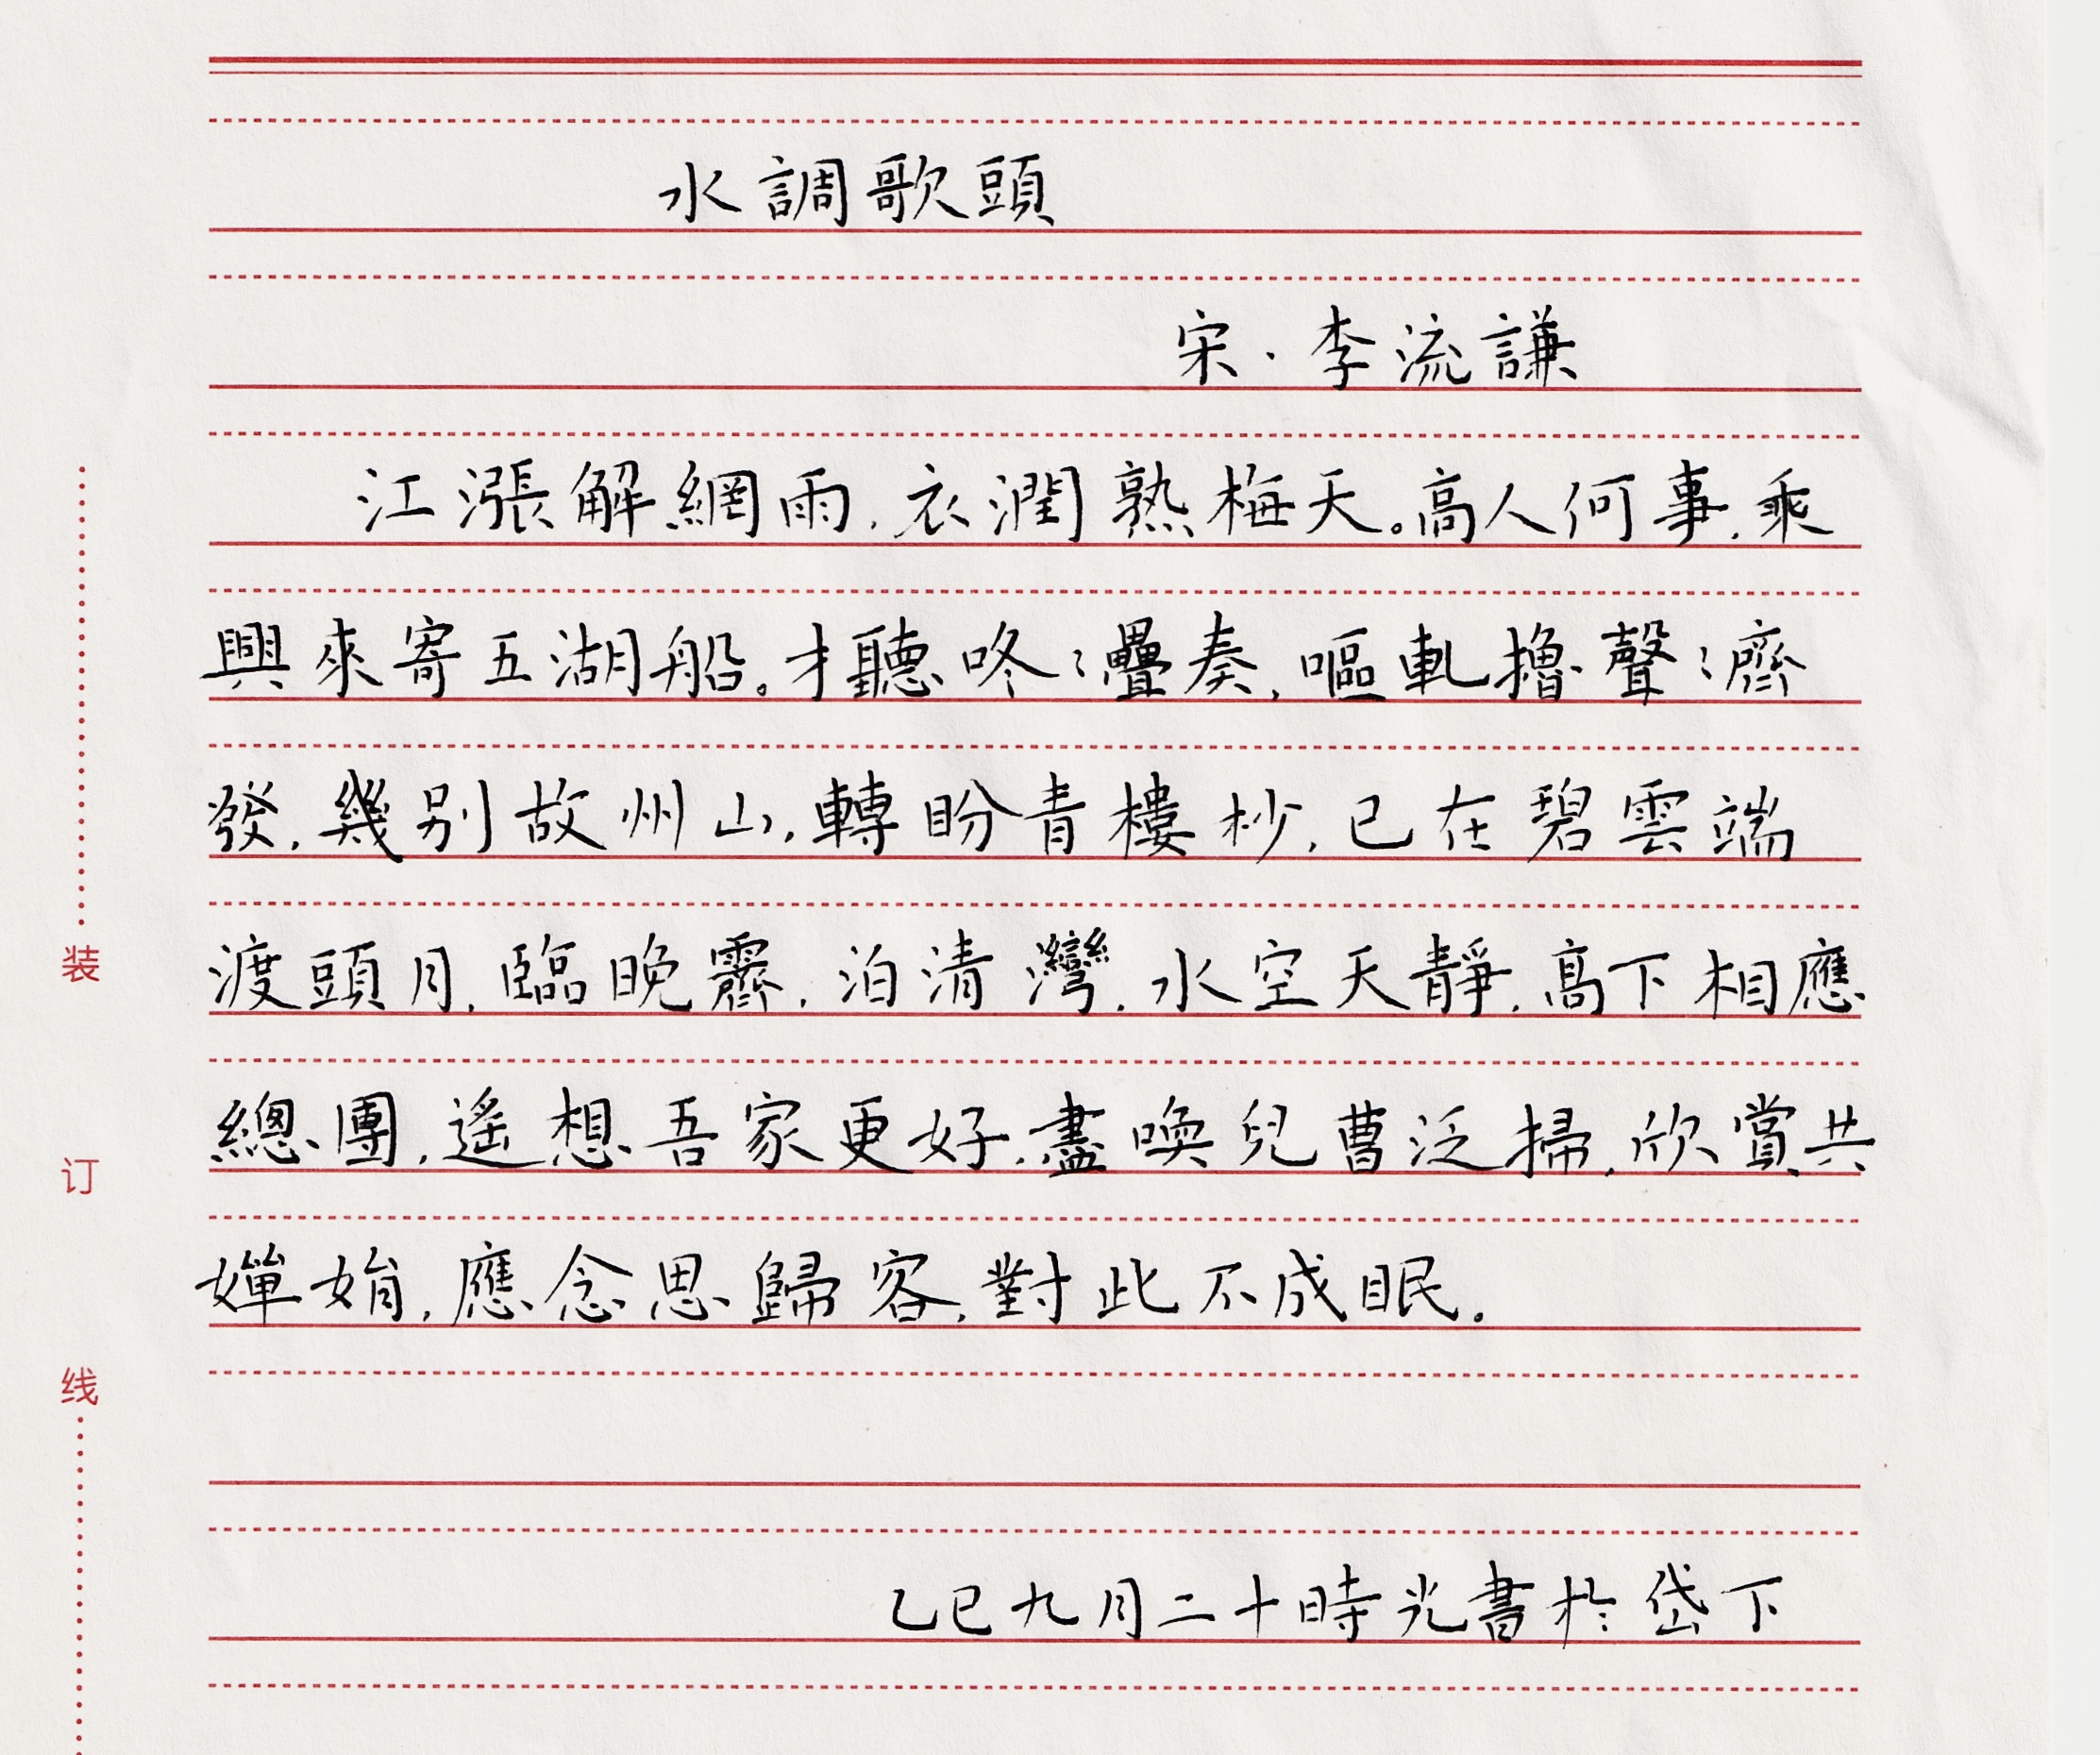 水調歌頭
宋·李流謙
江漲解網雨,衣潤熟梅天。高人何事,乘
興來寄五湖船。才聽咚〻疊奏,嘔軋擼聲〻齊
發,幾別故州山,轉盼青樓杪,已在碧雲端
渡頭月,臨晚霽,泊清灣,水空天靜,高下相應
總團,遙想吾家更好,盡喚兒曹泛掃,欣賞共
嬋娟,應念思歸客,對此不成眠。
乙巳九月二十時光書於岱下
装
订
线